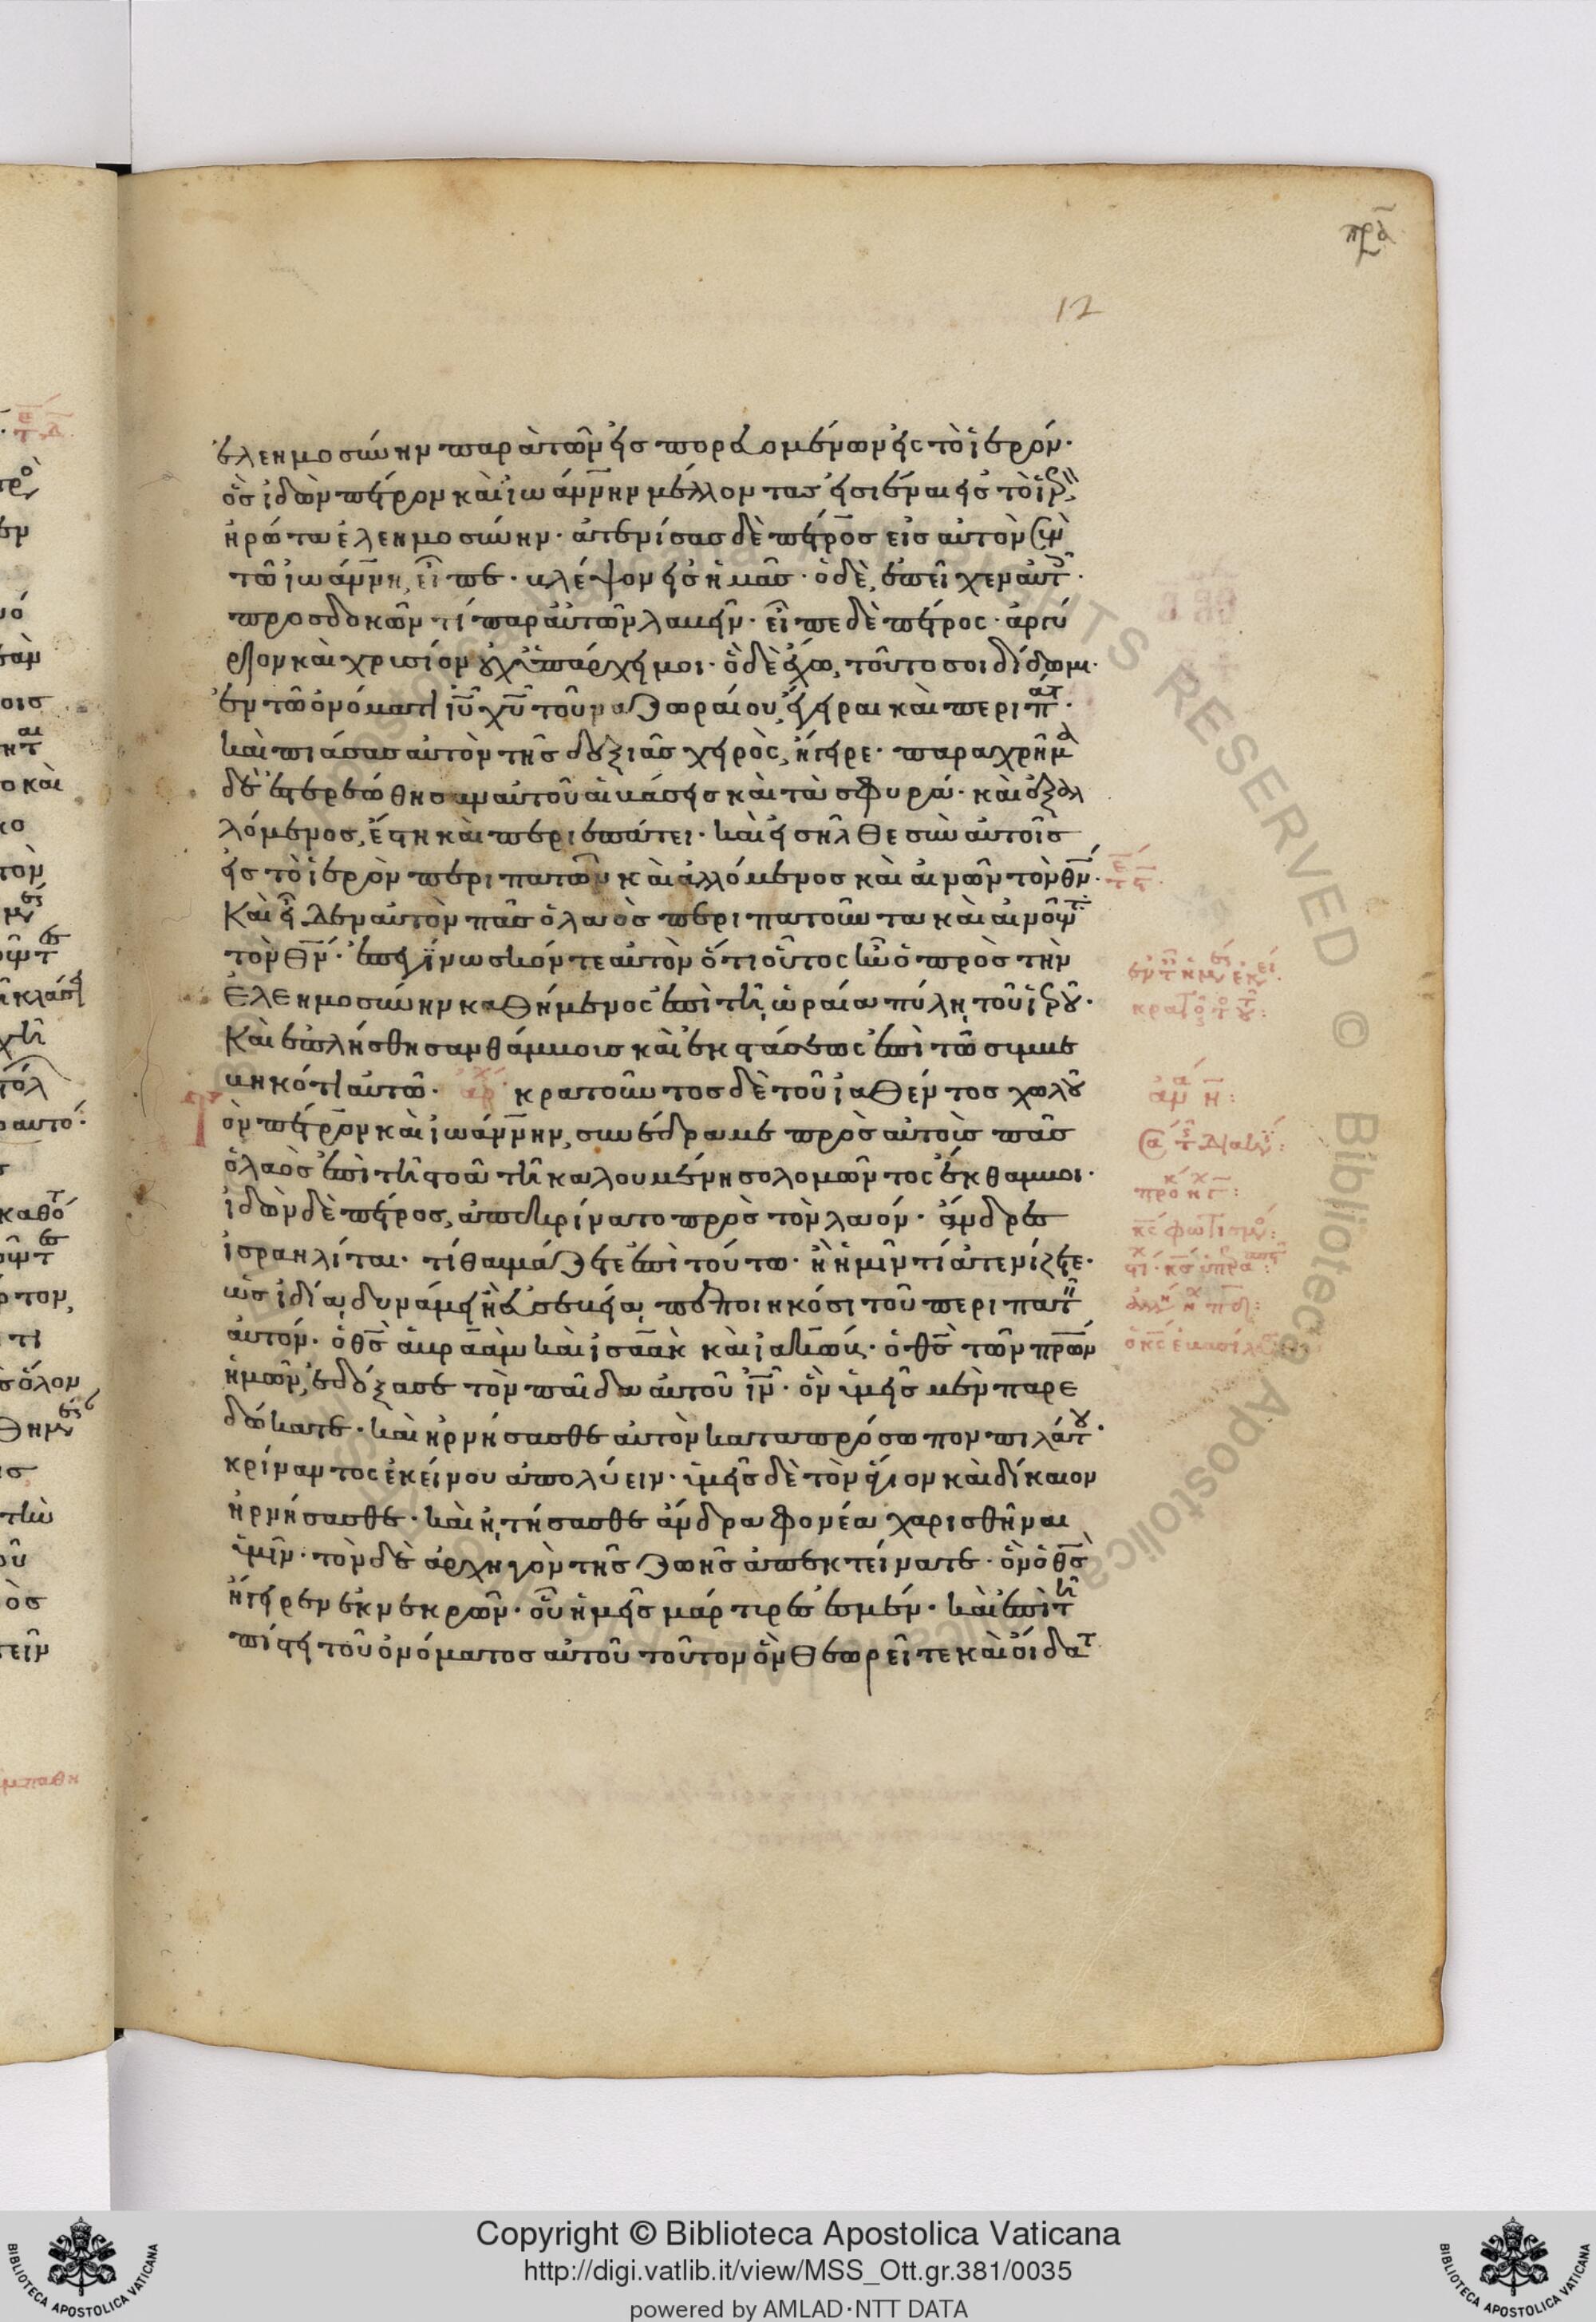 πρα
12
ἐλεημοσύνην παρὰ τῶν εἰσπορευομένων εἰς τὸ ἱερόν·
ὃς ἰδὼν πέτρον καὶ ἰωάννην μέλλοντας εἰσιέναι εἰς τὸ ἱερ
ἠρώτα ἐλεημοσύνην· ἀτενίσας δὲ πέτρος εἰς αὐτὸν σὺν
τῶ ἰωάννη, εἶπε· βλέψον εἰς ἡμᾶς· ὁ δὲ, ἐπεῖχεν αὐτ·
προσδοκῶν τί παρ αὐτῶν λαβεῖν· εἶπε δὲ πέτρος· ἀργύ
ριον καὶ χρυσίον οὐχ ὑπάρχει μοι· ὃ δὲ ἔχω, τοῦτο σοι δίδωμι·
ἐν τῶ ὀνόματι ἰῦ χῦ τοῦ ναζωραίου, ἔγειραι καὶ περιπάτ·
καὶ πιάσας αὐτὸν τῆς δεξιᾶς χειρὸς, ἤγειρε· παραχρῆμα
δὲ ἐστερεώθησαν αὐτοῦ αἱ βάσεις καὶ τὰ σφυρά· καὶ ἐξαλ
λόμενος, ἔστη καὶ περιεπάτει· καὶ εἰσῆλθε σὺν αὐτοῖς
εἰς τὸ ἱερὸν περιπατῶν καὶ ἁλλόμενος καὶ αἰνῶν τὸν θν·
Καὶ εἶδεν αὐτὸν πᾶς ὁ λαὸς περιπατοῦντα καὶ αἰνοῦντ
τὸν θν· ἐπεγίνωσκόν τε αὐτὸν ὅτι οὗτος ἦν ὁ πρὸς τὴν
ἐλεημοσύνην καθήμενος ἐπὶ τῆ ὡραία πύλη τοῦ ἱεροῦ·
Καὶ ἐπλήσθησαν θάμβους καὶ ἐκστάσεως ἐπὶ τῶ συμβε
βηκότι αὐτῶ· ἀρχ κρατοῦντος δὲ τοῦ ἰαθέντος χωλοῦ
Τὸν πέτρον καὶ ἰωάννην, συνέδραμε πρὸς αὐτοὺς πᾶς
ὁ λαὸς ἐπὶ τῆ στοᾶ τῆ καλουμένη σολομῶντος ἔκθαμβοι·
ἰδὼν δὲ πέτρος, ἀπεκρίνατο πρὸς τὸν λαόν· ἄνδρες
ἰσραηλίται· τί θαυμάζετε ἐπὶ τούτω· ἢ ἡμῖν τί ἀτενίζετε·
ὡς ἰδία δυνάμει ἢ εὐσεβεία πεποιηκόσι τοῦ περιπατ
αὐτόν· ὁ θς ἀβραὰμ καὶ ἰσαὰκ καὶ ἰακώβ· ὁ θς τῶν πρων
ἡμῶν, ἐδόξασε τὸν παῖδα αὐτοῦ ιν· ὃν ὑμεῖς μὲν παρε
δώκατε· καὶ ἠρνήσασθε αὐτὸν κατα πρόσωπον πιλάτου·
κρίναντος ἐκείνου ἀπολύειν· ὑμεῖς δὲ τὸν ἅγιον καὶ δίκαιον
ἠρνήσασθε· καὶ ἠτήσασθε ἄνδρα φονέα χαρισθῆναι
ὑμῖν· τὸν δὲ ἀρχηγὸν τῆς ζωῆς ἀπεκτείνατε· ὃν ὁ θς
ἤγειρεν ἐκ νεκρῶν· οὗ ἡμεῖς μάρτυρες ἐσμέν· καὶ ἐπὶ τῆ
πίστει τοῦ ὀνόματος αὐτοῦ τοῦτον ὃν θεωρεῖτε καὶ οἴδατ
Copyright © Biblioteca Apostolica Vaticana
http://digi.vatlib.it/view/MSS_Ott.gr.381/0035
powered by AMLAD·NTT DATA